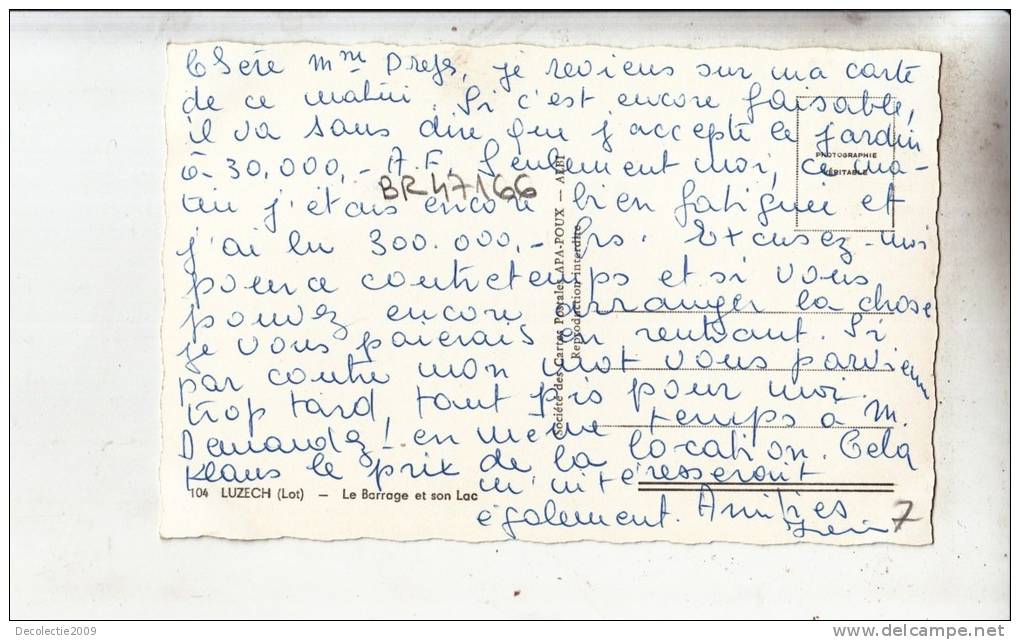 Chère Mme Drefs, je reviens sur ma carte
de ce matin. Si c'est encore faisable,
il va sans dire que j'accepte le jardin
à 30.000,- A.F. Seulement moi, ce ma-
tin j'étais encore bien fatiguée et
j'ai lu 300.000,- frs. Excusez-moi
pour ce contretemps et si vous
pouvez encore arranger la chose
je vous paierais en rentrant. Si
par contre mon mot vous parvient
trop tard, tant pis pour moi.
Demandez en même temps à M.
Klaus le prix de la location. Cela
m'intéresserait
également. Amitiés
PHOTOGRAPHIE
VÉRITABLE
BR47166
Société des Cartes Postales APA-POUX — ALBI
Reproduction interdite
104 LUZECH (Lot) — Le Barrage et son Lac
7
Decolectie2009
www.delcampe.net